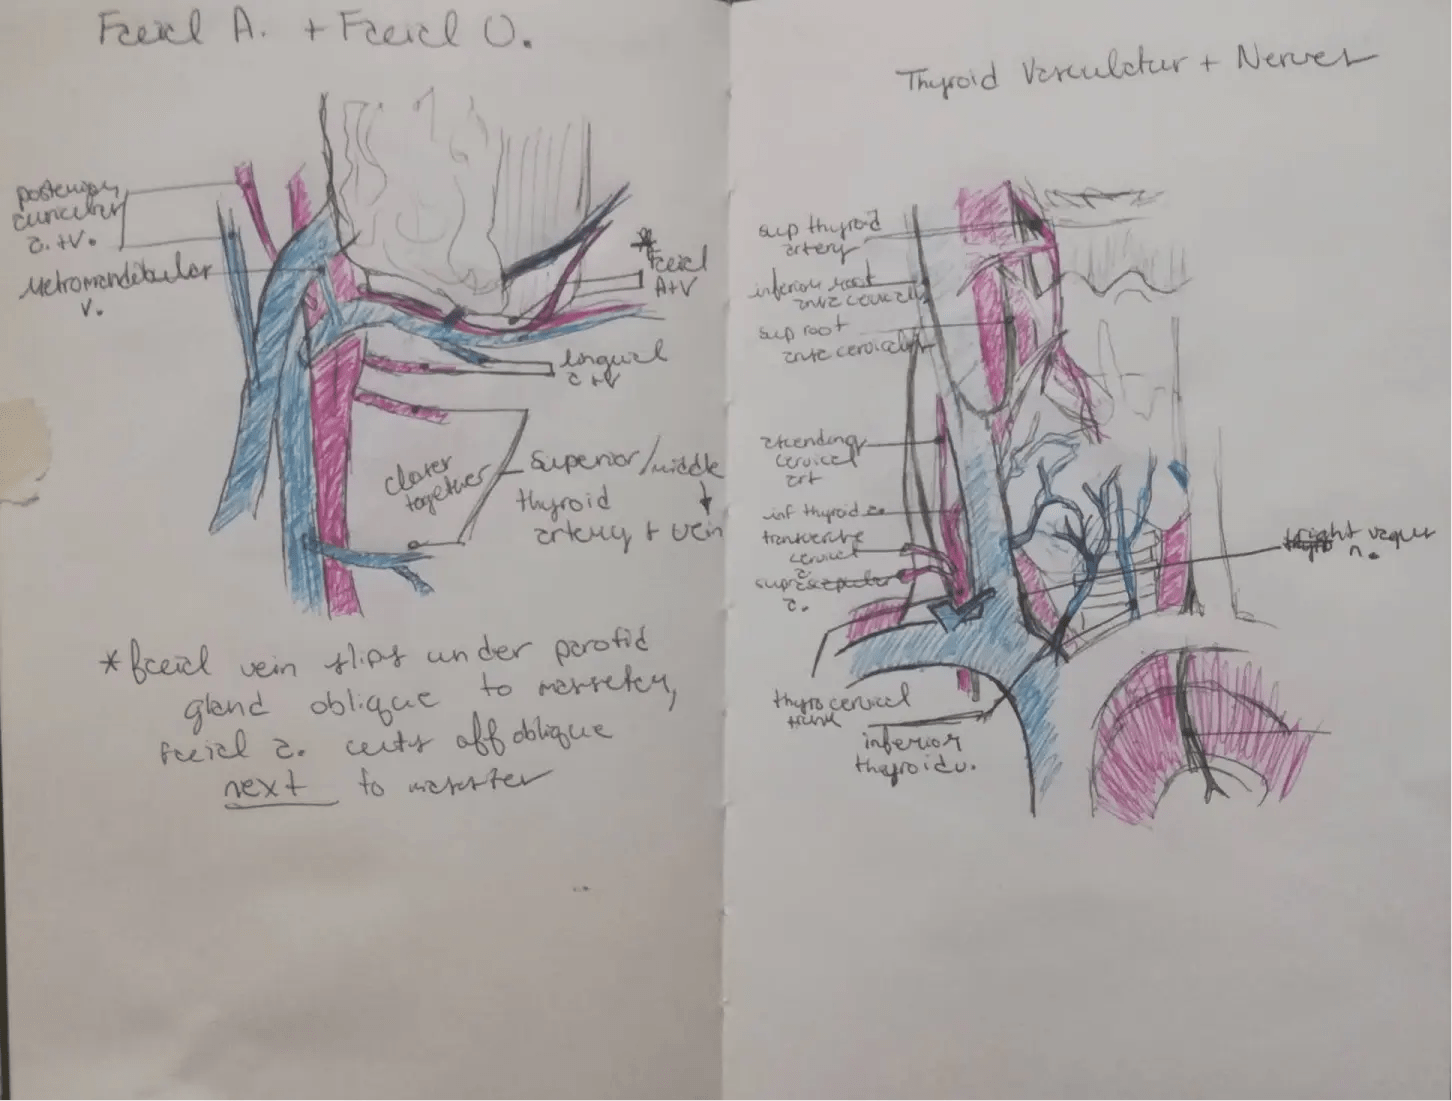 Facial A. + Facial V.
posterior
auricular
a. + v.
Retromandibular
v.
* Facial
A+V
lingual
a + v
closer
together
superior/middle
thyroid
artery + vein
* facial vein slips under parotid
gland oblique to masseter,
facial a. cuts off oblique
next to masseter
Thyroid Vasculatur + Nerves
sup thyroid
artery
inferior root
ansa cervicalis
sup root
ansa cervicalis
ascending
cervical
art
inf thyroid a.
transverse
cervical
a.
suprascapular
a.
thyrocervical
trunk
inferior
thyroid v.
right vagus
n.